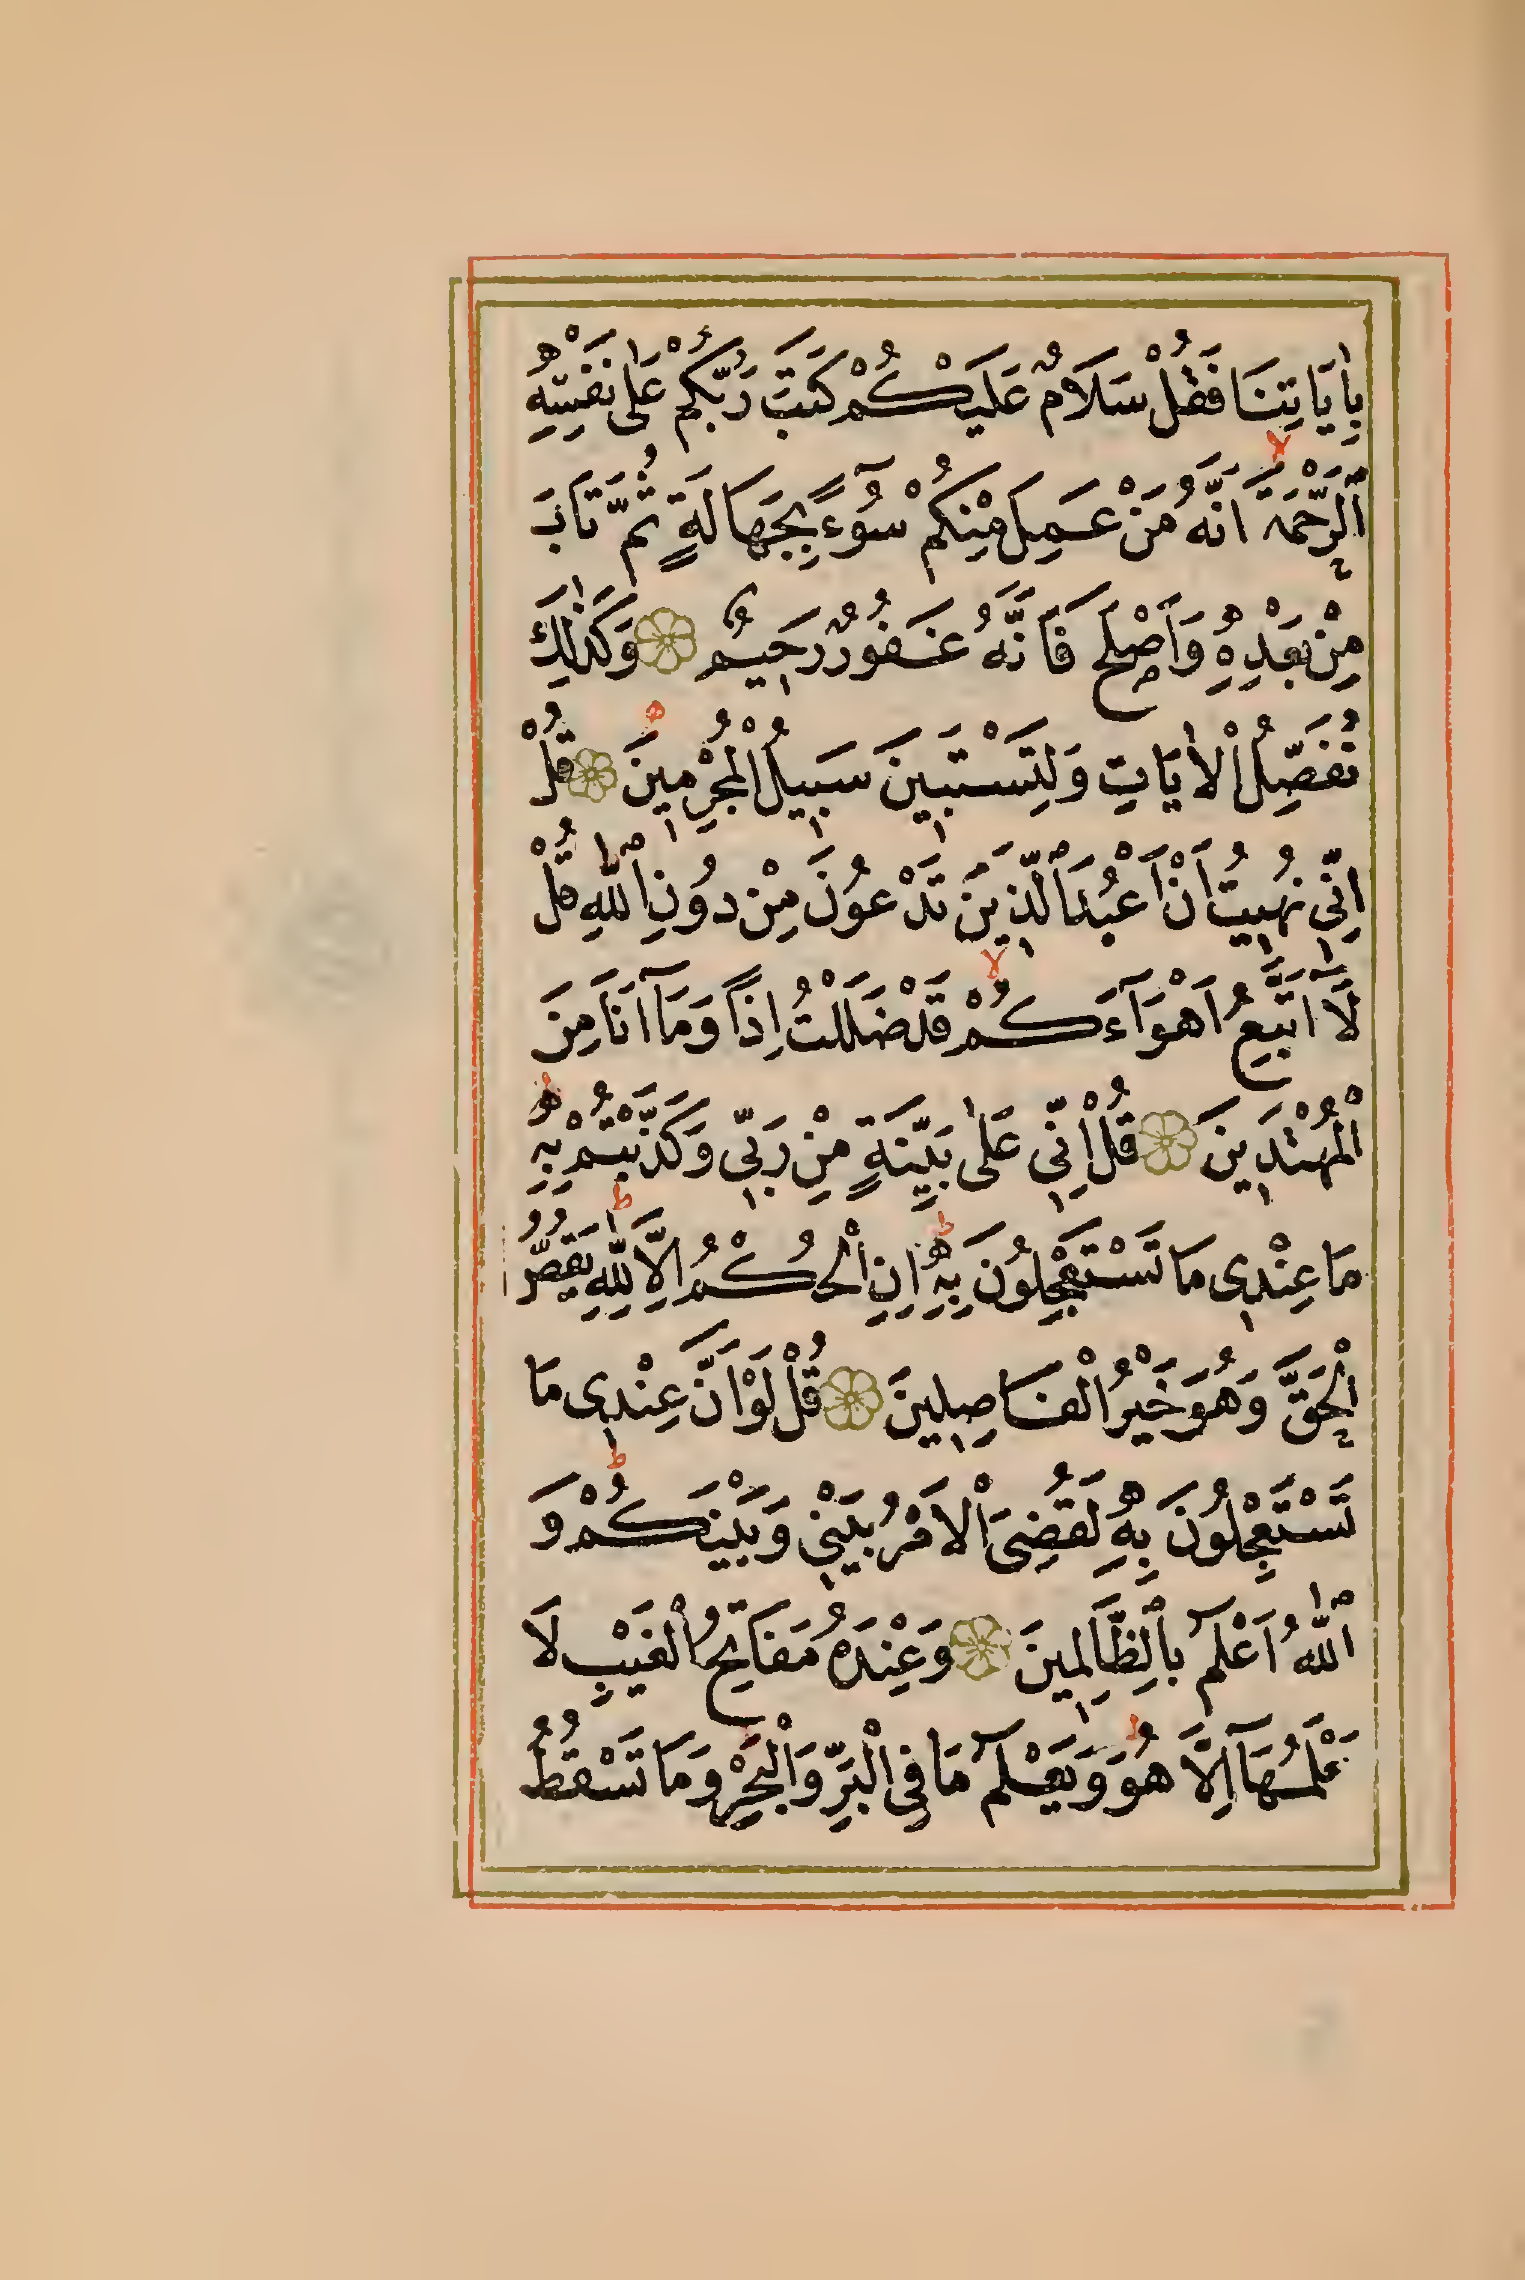 بِاٰيَاتِنَا فَقُلْ سَلَامٌ عَلَيْكُمْ كَتَبَ رَبُّكُمْ عَلٰى نَفْسِهِ
ٱلرَّحْمَةَ ۙ اَنَّهُ مَنْ عَمِلَ مِنْكُمْ سُوٓءًا بِجَهَالَةٍ ثُمَّ تَابَ
مِنْ بَعْدِهِ وَاَصْلَحَ فَاَنَّهُ غَفُورٌ رَحِيمٌ ۝ وَكَذٰلِكَ
نُفَصِّلُ الْاٰيَاتِ وَلِتَسْتَبِينَ سَبِيلُ الْمُجْرِمِينَ ۝ قُلْ
اِنِّي نُهِيتُ اَنْ اَعْبُدَ ٱلَّذِينَ تَدْعُونَ مِنْ دُونِ ٱللّٰهِ قُلْ
لَآ اَتَّبِعُ اَهْوَآءَكُمْ ۙ قَدْ ضَلَلْتُ اِذًا وَمَآ اَنَا مِنَ
الْمُهْتَدِينَ ۝ قُلْ اِنِّي عَلٰى بَيِّنَةٍ مِنْ رَبِّي وَكَذَّبْتُمْ بِهِ ۗ
مَا عِنْدِي مَا تَسْتَعْجِلُونَ بِهِ ۗ اِنِ الْحُكْمُ اِلَّا لِلّٰهِ ۗ يَقُصُّ
الْحَقَّ وَهُوَ خَيْرُ الْفَاصِلِينَ ۝ قُلْ لَوْ اَنَّ عِنْدِي مَا
تَسْتَعْجِلُونَ بِهِ لَقُضِيَ الْاَمْرُ بَيْنِي وَبَيْنَكُمْ ۗ وَ
ٱللّٰهُ اَعْلَمُ بِٱلظَّالِمِينَ ۝ وَعِنْدَهُ مَفَاتِحُ الْغَيْبِ لَا
يَعْلَمُهَآ اِلَّا هُوَ ۗ وَيَعْلَمُ مَا فِي الْبَرِّ وَالْبَحْرِ ۗ وَمَا تَسْقُطُ